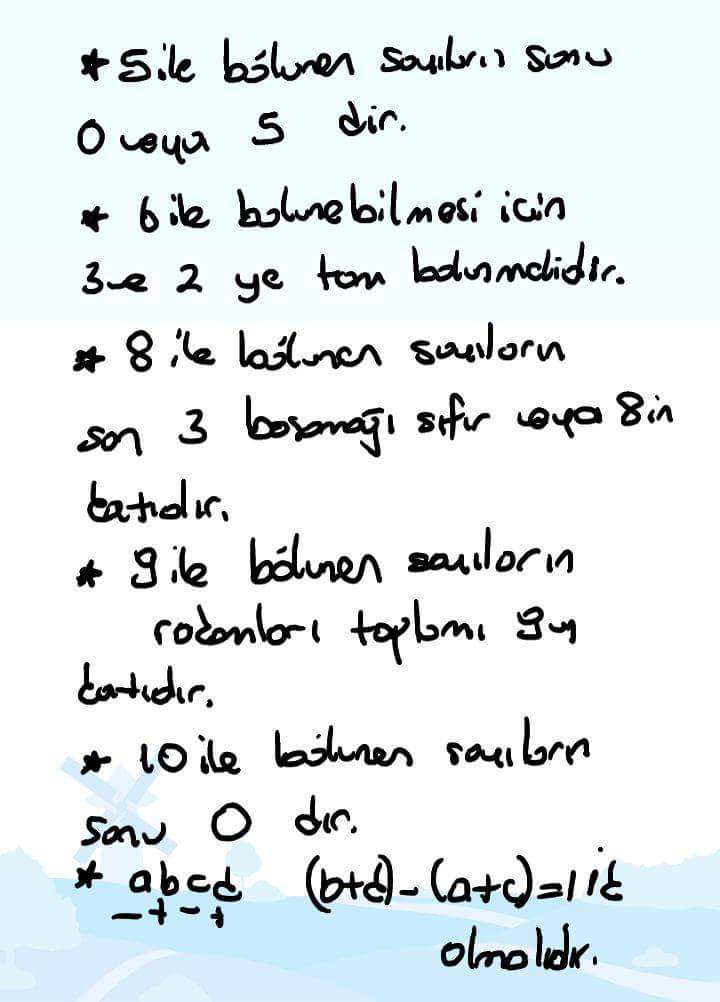 * 5 ile bölünen sayıların sonu
0 veya 5 dir.
* 6 ile bölünebilmesi için
3 e 2 ye tam bölünmelidir.
* 8 ile bölünen sayıların
son 3 basamağı sıfır veya 8 in
katıdır.
* 9 ile bölünen sayıların
rakamları toplamı 9 un
katıdır.
* 10 ile bölünen sayıların
sonu 0 dır.
* abcd (b+d)-(a+c)=11k
- + - +
olmalıdır.